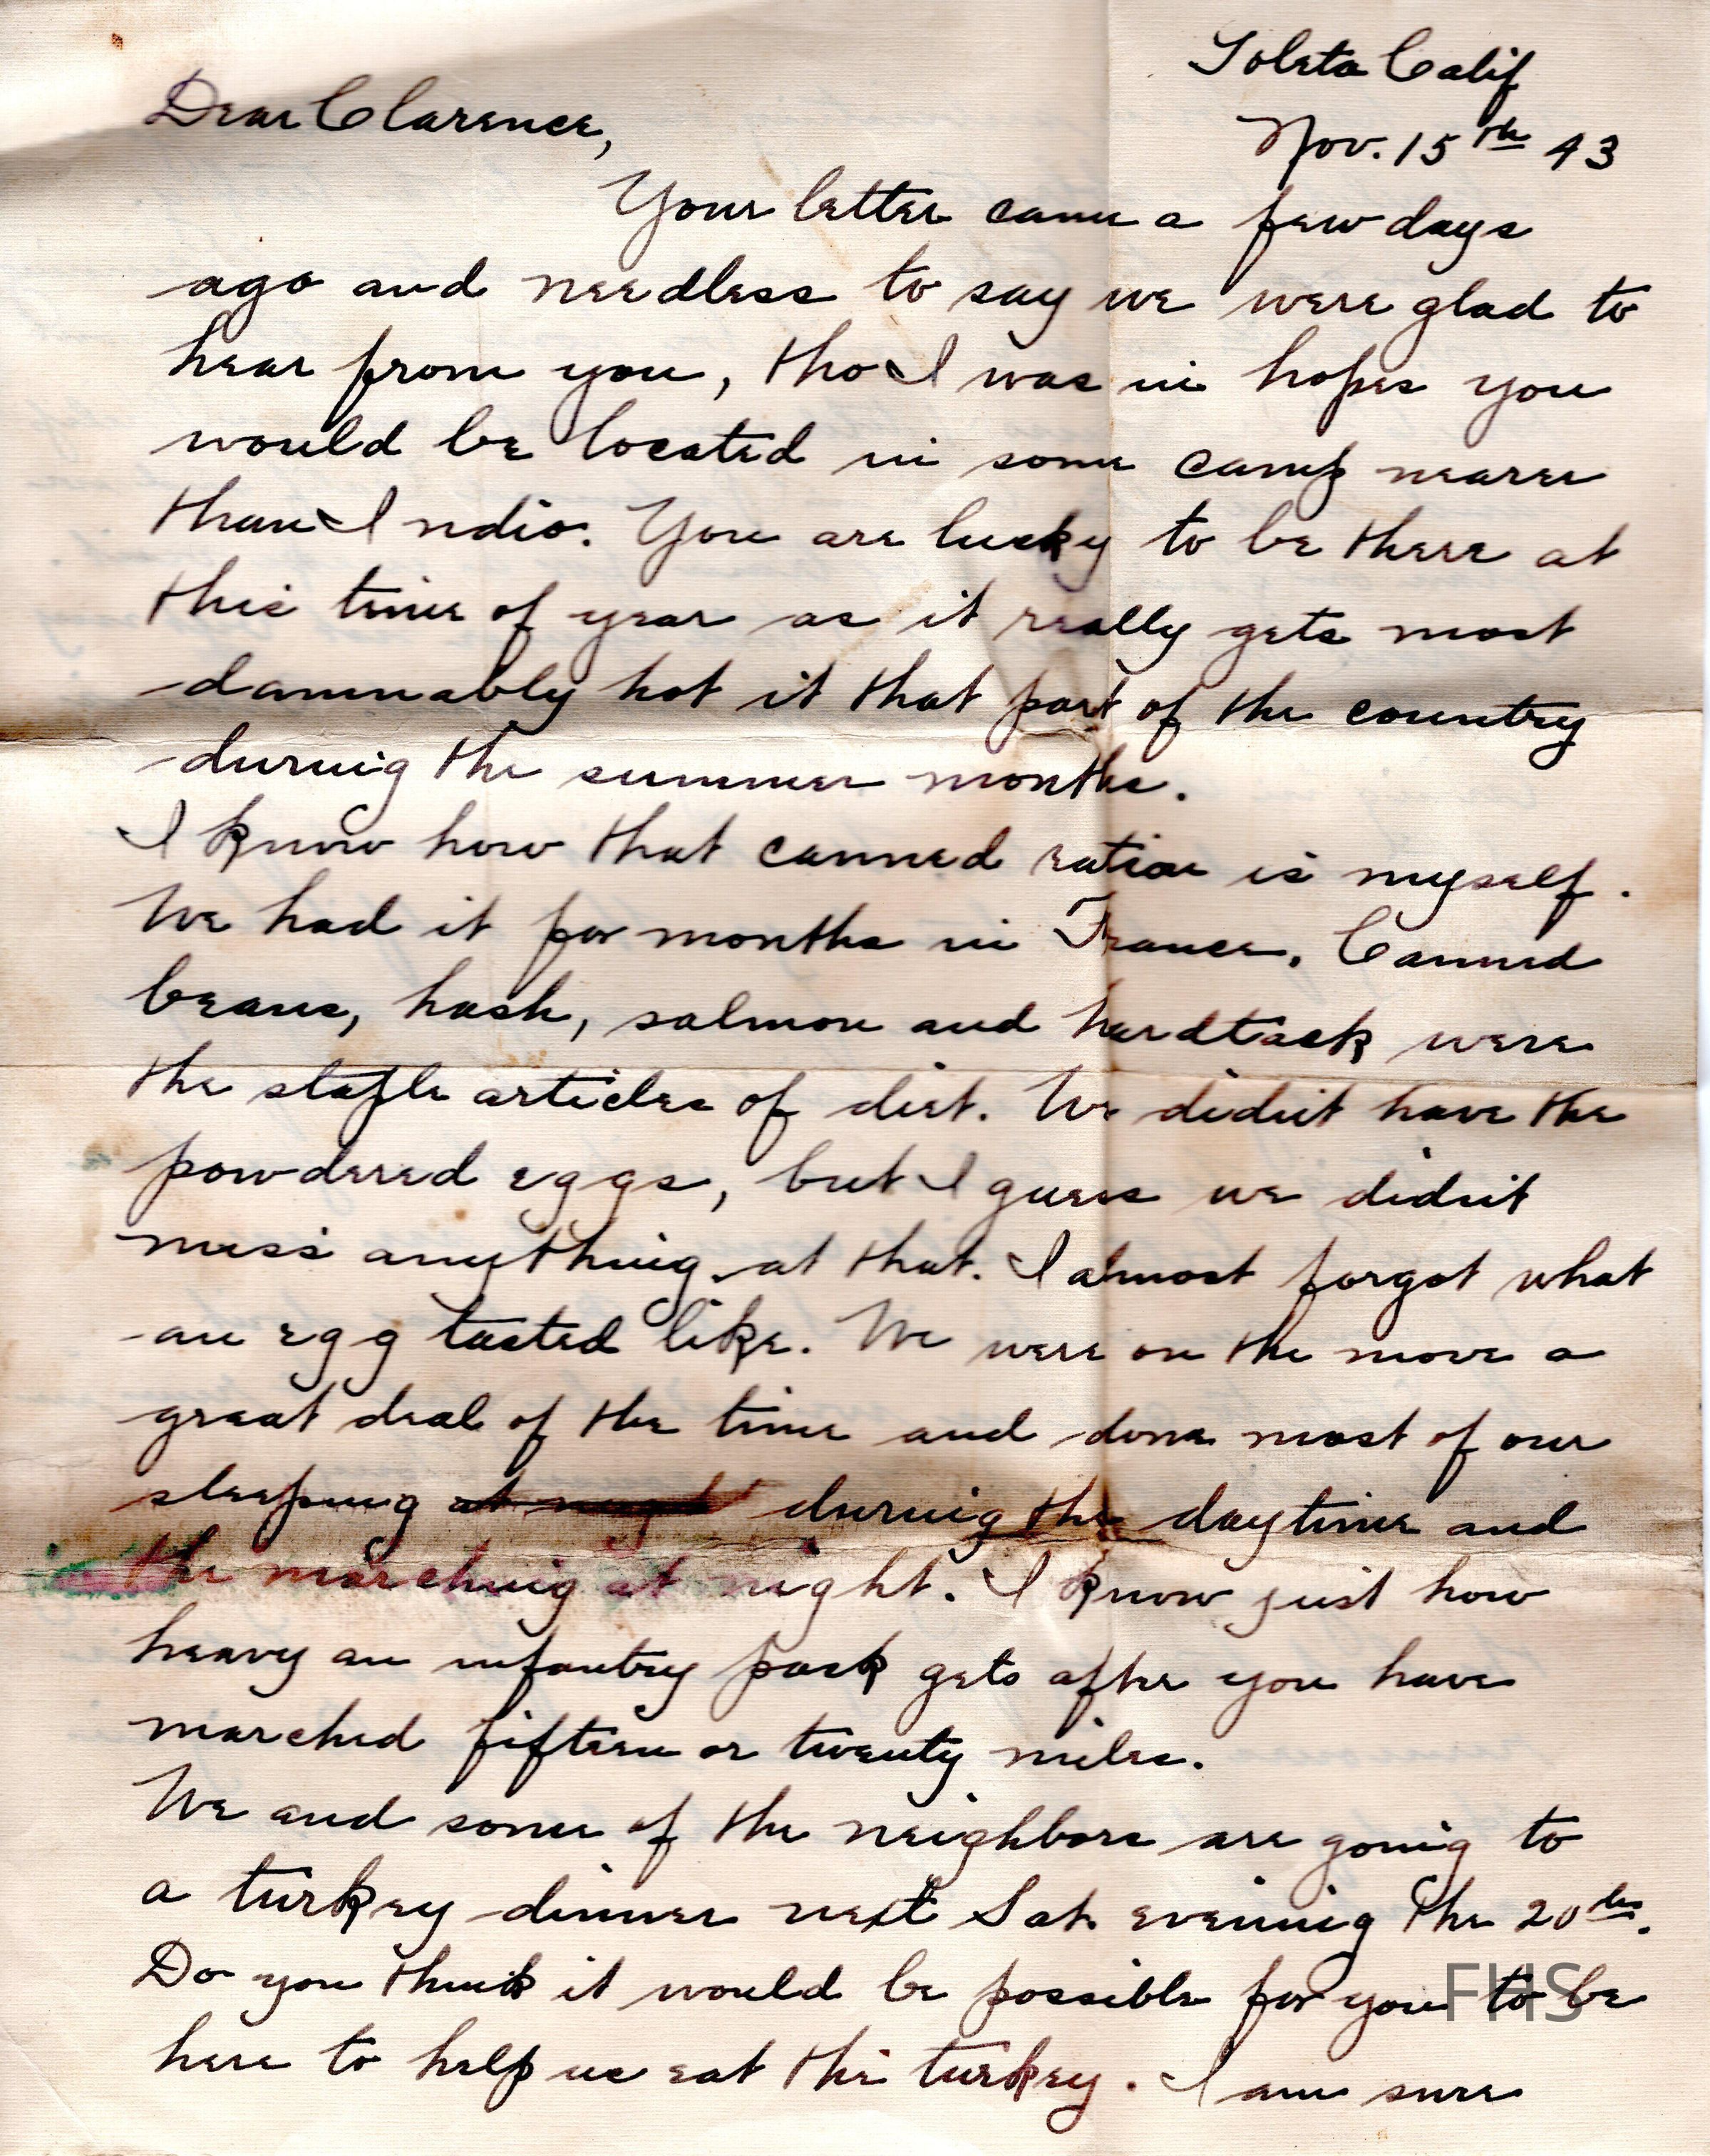 Goleta Calif
Nov. 15th 43
Dear Clarence,
Your letter came a few days
ago and needless to say we were glad to
hear from you, tho I was in hopes you
would be located in some camp nearer
than Indio. You are lucky to be there at
this time of year as it really gets most
damnably hot it that part of the country
during the summer months.
I know how that canned ration is myself.
We had it for months in France. Canned
beans, hash, salmon and hardtack were
the staple articles of diet. We didn't have the
powdered eggs, but I guess we didn't
miss anything at that. I almost forgot what
an egg tasted like. We were on the move a
great deal of the time and done most of our
sleeping at night during the daytime and
the marching at night. I know just how
heavy an infantry pack gets after you have
marched fifteen or twenty miles.
We and some of the neighbors are going to
a turkey dinner next Sat. evening the 20th.
Do you think it would be possible for you to be
here to help us eat the turkey. I am sure
FHS